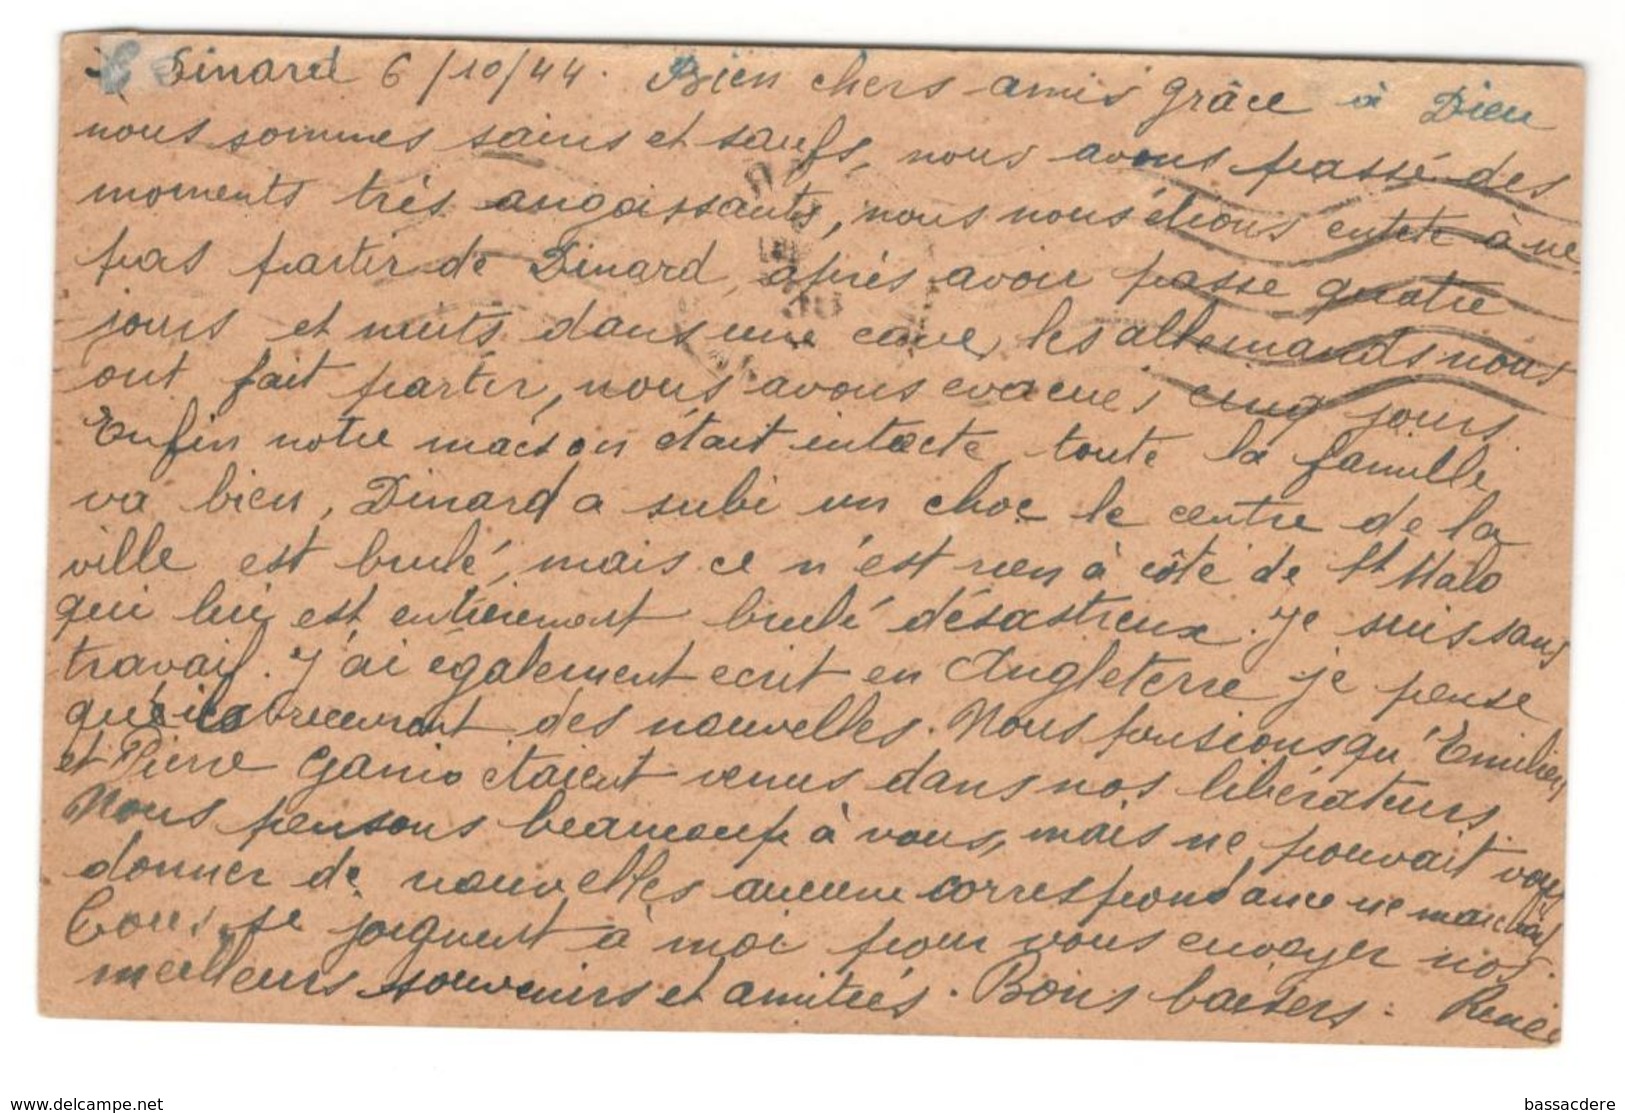 Dinard 6/10/44. Bien chers amis grâce à Dieu
nous sommes sains et saufs, nous avons passé des
moments très angoissants, nous nous étions enteté à ne
pas partir de Dinard, après avoir passé quatre
jours et nuits dans une cave, les allemands nous
ont fait partir, nous avons evacués cinq jours.
Enfin notre maison était intacte, toute la famille
va bien, Dinard a subi un choc le centre de la
ville est brulé, mais ce n'est rien à côté de St Malo
qui lui est entièrement brulé désastreux. Je suis sans
travail. J'ai également ecrit en Angleterre je pense
des nouvelles. Nous pensions qu'Emilien
et Pierre Ganio étaient venus dans nos libérateurs.
Nous pensons beaucoup à vous, mais ne pouvait vous
donner de nouvelles aucune correspondance ne marchait
Tous se joignent à moi pour vous envoyer nos
meilleurs souvenirs et amitiés. Bons baisers. Renée
www.delcampe.net
bassacdere